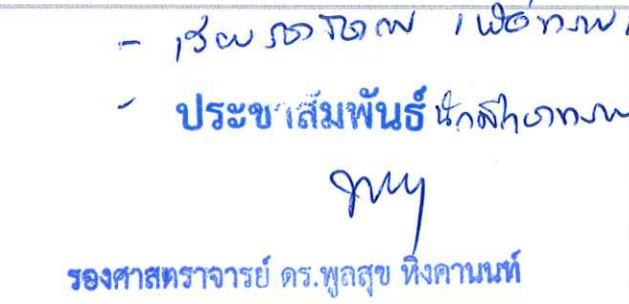 - เรียน รองวิชาการ เพื่อทราบ
- ประชาสัมพันธ์ นักศึกษาทราบ
รองศาสตราจารย์ ดร.พูลสุข หิงคานนท์